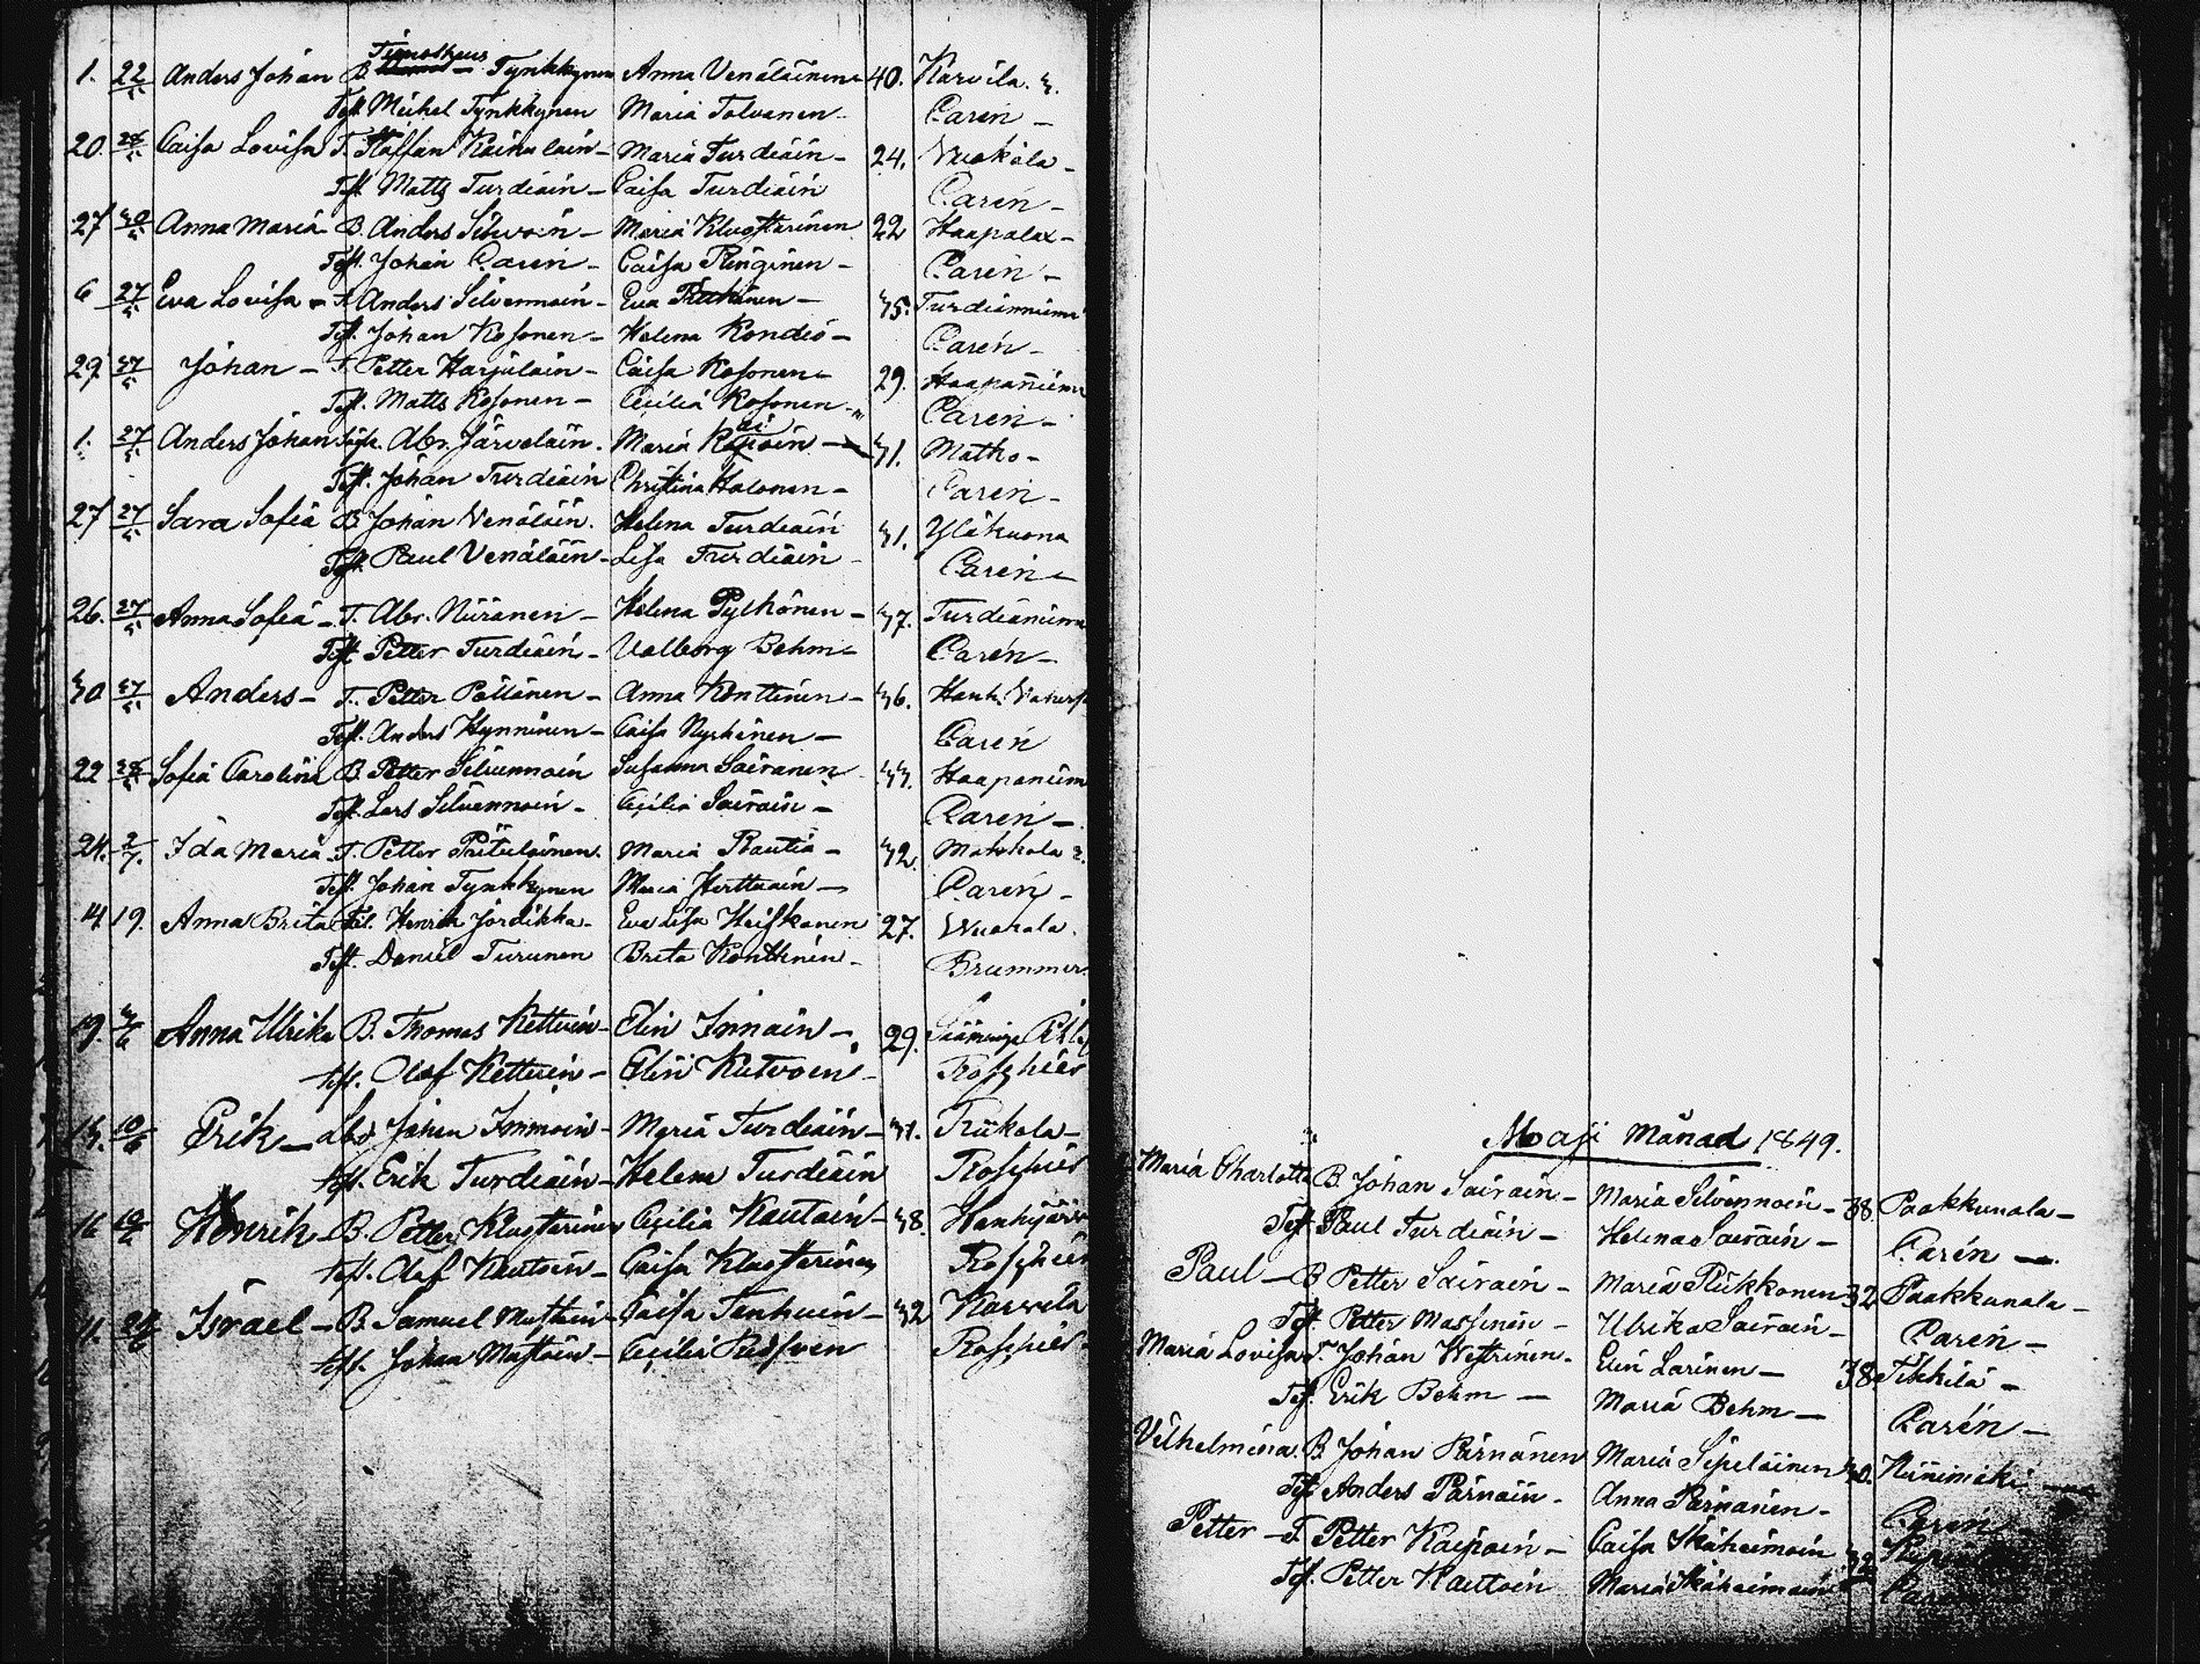 Timotheus
1. 22/5 Anders Johan B. Tynkkynen Anna Venäläinen 40. Karvila
Test. Michel Tynkkynen Maria Tolvanen Carén
20. 28/5 Caisa Lovisa T. Staffan Kainulain Maria Turdiain 24. Vuokala
Test. Matts Turdiain Caisa Turdiain Carén
27 30/5 Anna Maria B. Anders Silwoin Maria Kluastarinen 22 Haapalax
Test. Johan Carén Caisa Ringinen Carén
6 27/5 Eva Lovisa T. Anders Silvennoin Eva 35. Turdianniemi
Test. Johan Kosonen Helena Kondio Carén
29 27/5 Johan T. Petter Harjulain Caisa Kosonen 29. Haapaniemi
Test. Matts Kosonen Cecilia Kosonen Carén
1. 27/5 Anders Johan Abr. Järveläin Maria 31. Matho
Test. Johan Turdiain Christina Halonen Carén
27 27/5 Sara Sofia B. Johan Venäläin. Helena Turdiain 31. Yläkuona
Test. Paul Venäläin Lisa Turdiain Carén
26. 27/5 Anna Sofia T. Abr. Niiranen Helena Pylkönen 37. Turdianiemi
Test. Petter Turdiain Valborg Behm Carén
30 27/5 Anders T. Petter Pöllänen Anna Konttinen 36. Hank.
Test. Anders Hynninen Caisa Nyrhinen Carén
22 28/5 Sofia Carolina B. Petter Silvennoin Susanna Sairanen 33. Haapaniem
Test. Lars Silvennoin Cecilia Sairain Carén
24. 2/7. Ida Maria T. Petter Pitulainen. Maria Rautia 32. Makkola
Test. Johan Tynkkynen Maria Herttuain Carén
14 19. Anna Brita Henrik Jordikka Eva Lisa Heiskanen 27. Wuokala.
Test. Daniel Turunen Brita Konttinen Brummer.
19. 3/6 Anna Ulrika B. Thomas Kettuin Elin Innain 29. Sääminge
test. Olof Kettuin Elin Kutvoin Roschier
13. 10/6 Erik Johan Immoin Maria Turdiain 31. Riikola
test. Erik Turdiain Helena Turdiain Roschier
16 10/6 Henrik B. Petter Kluastarinen Cecilia Kautoin 38. Hankijärv
test. Olof Kautoin Caisa Kluastarinen Roschier
11. 24/6 Israel B. Samuel Mustoin Caisa Tenhuin 32 Karvila
test. Johan Mustoin Cecilia Roschier
Maji Månad 1849.
Maria Charlotta B. Johan Sairain Maria Silvennoin 38. Paakkunala
Test. Paul Turdiain Helena Sairain Carén
Paul B Petter Sairain Maria Riikkonen 32 Paakkunala
Test. Petter Massinen Ulrika Sairain Carén
Maria Lovisa T. Johan Westrinen. Elin Larinen 38 Tikkilä
Test. Erik Behm Maria Behm Carén
Vilhelmina. B. Johan Pärnänen Maria Sipeläinen 30. Niinimäki
Test Anders Pärnäin. Anna Pärnänen Carén
Petter T. Petter Kaipain Caisa Ikäheimoin
Test. Petter Kautoin Maria Ikäheimoin Carén